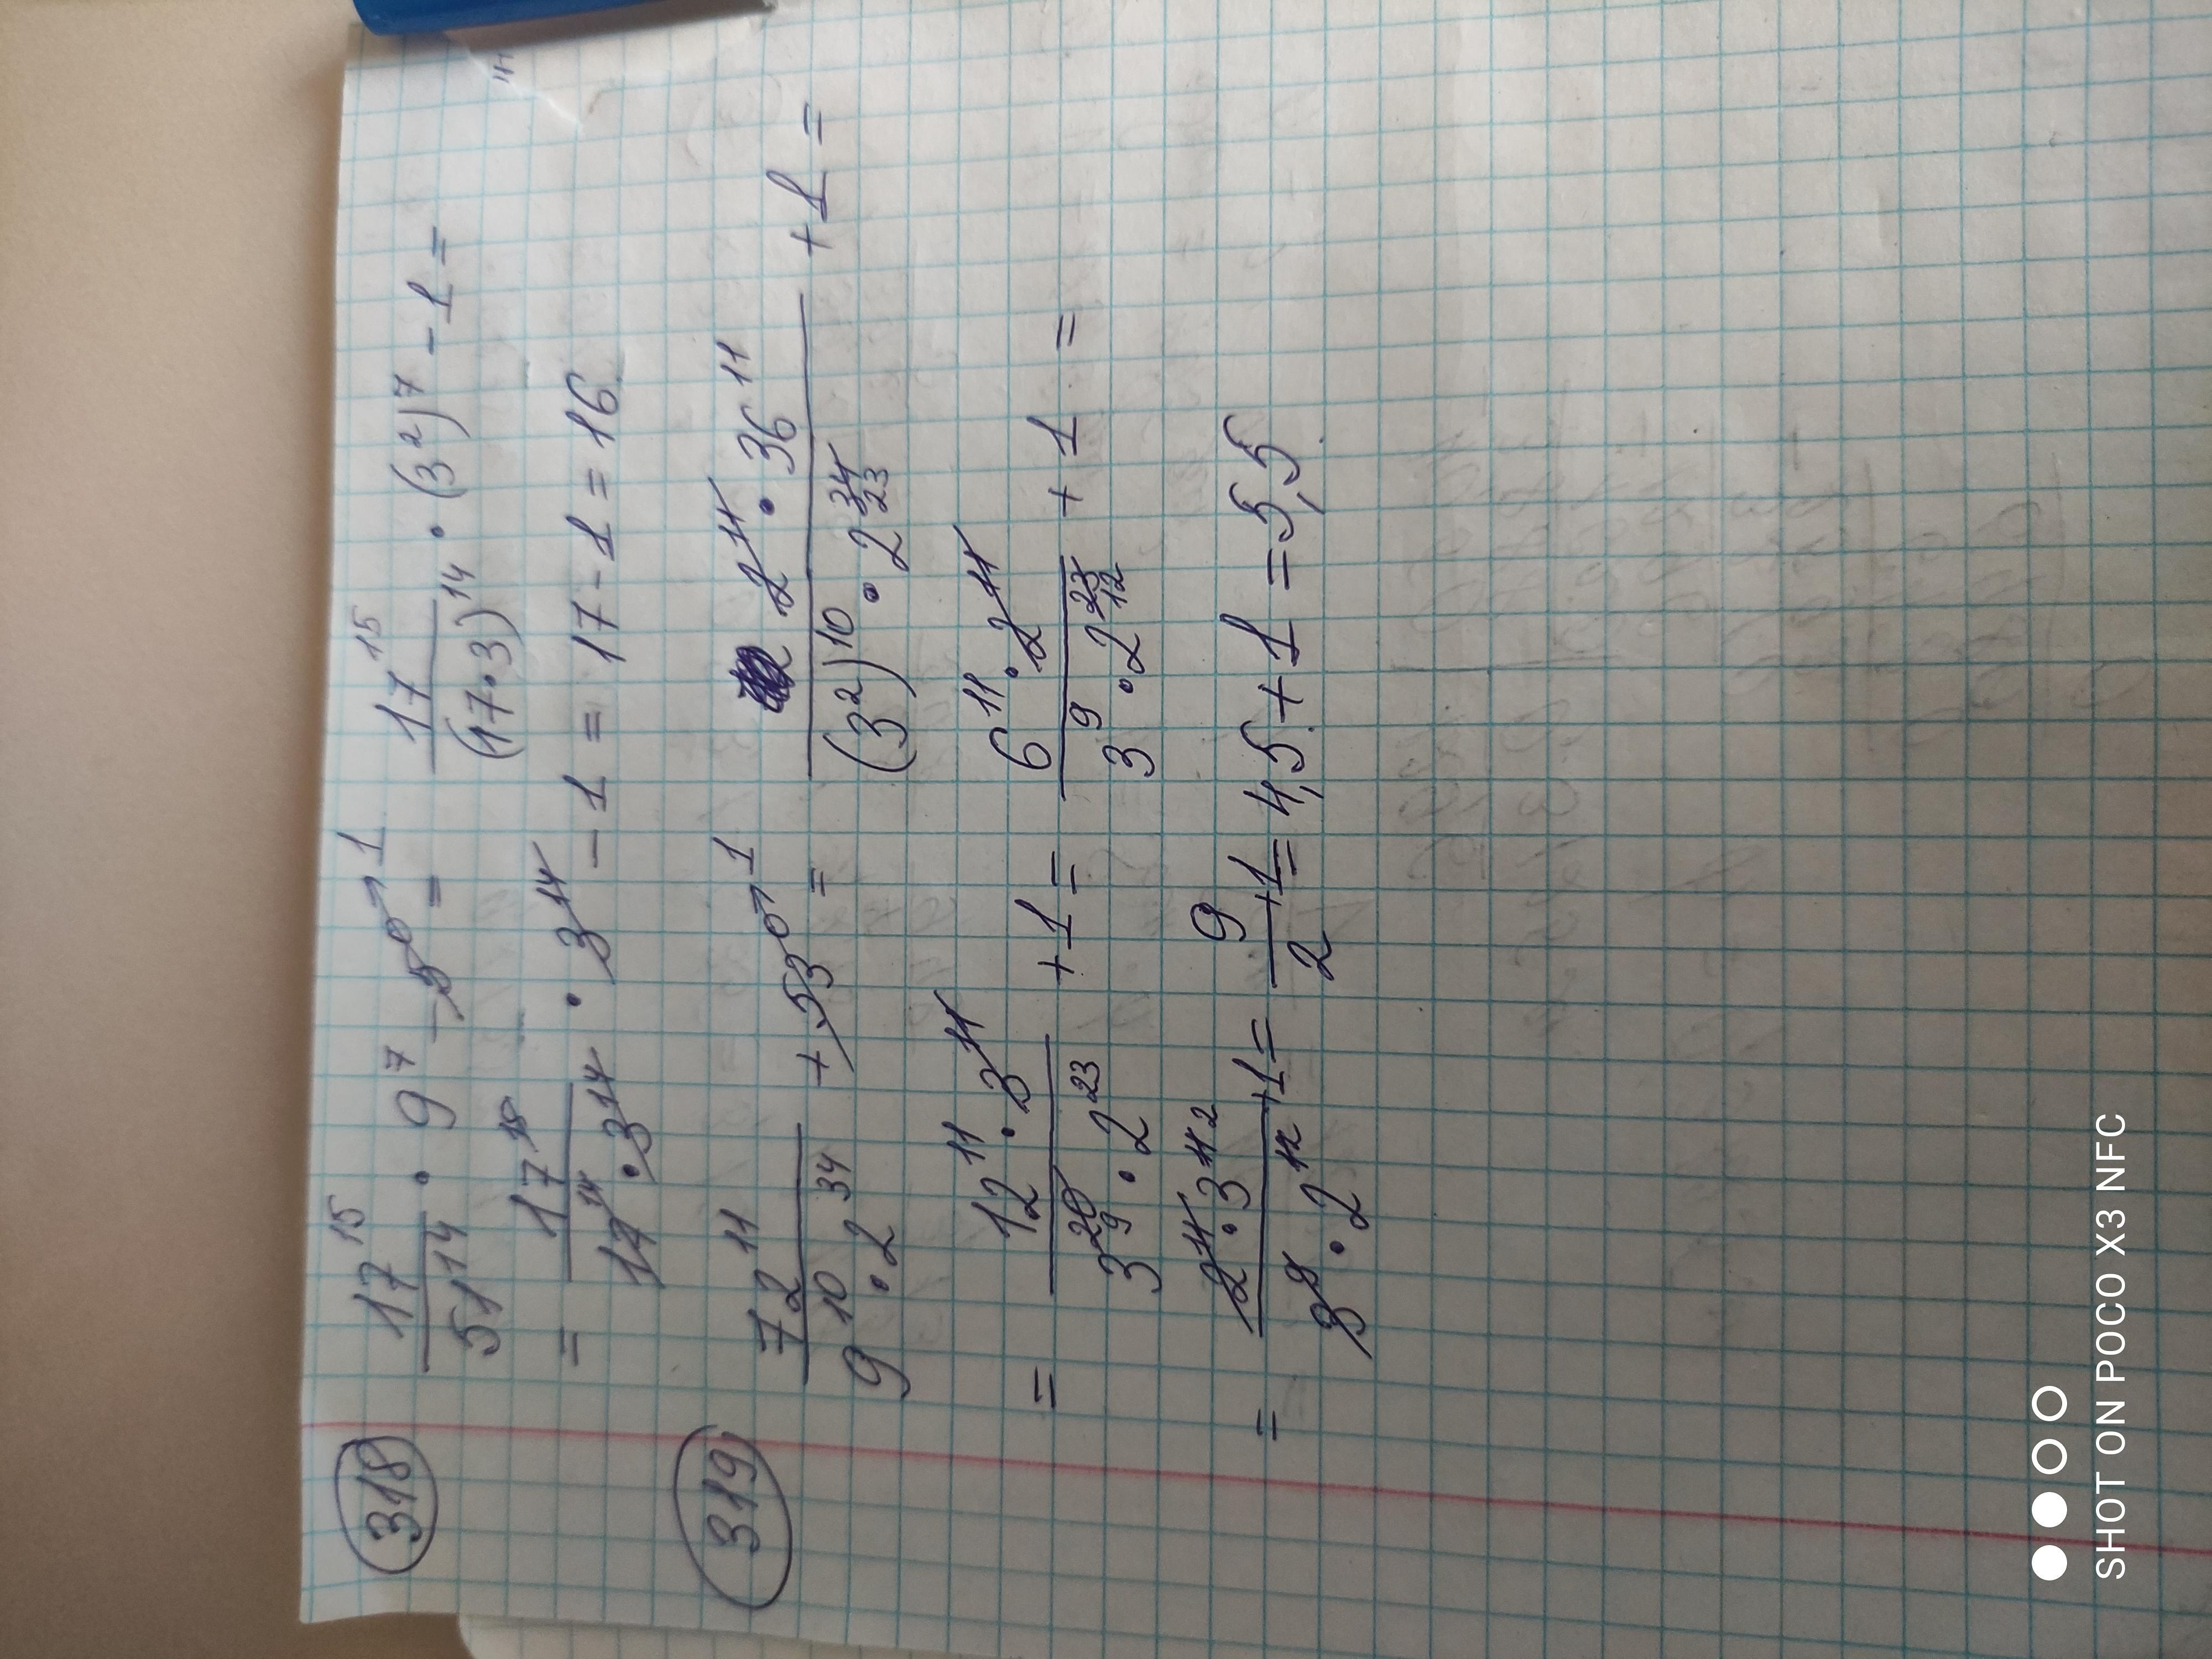 318 17^15/51^14 · 9^7 - 5^0→1 = 17^15/(17·3)^14 · (3^2)^7 - 1 =
= 17^15/17^14·3^14 · 3^14 - 1 = 17 - 1 = 16
319 72^11/9^10·2^34 + 53^0→1 = 2^11 · 36^11/(3^2)^10 · 2^34 23 + 1 =
= 12^11 · 3^11/3^20 9 · 2^23 + 1 = 6^11 · 2^11/3^9 · 2^23 12 + 1 =
= 2^11 · 3^11 2/3^9 · 2^12 + 1 = 9/2 + 1 = 4,5 + 1 = 5,5
SHOT ON POCO X3 NFC